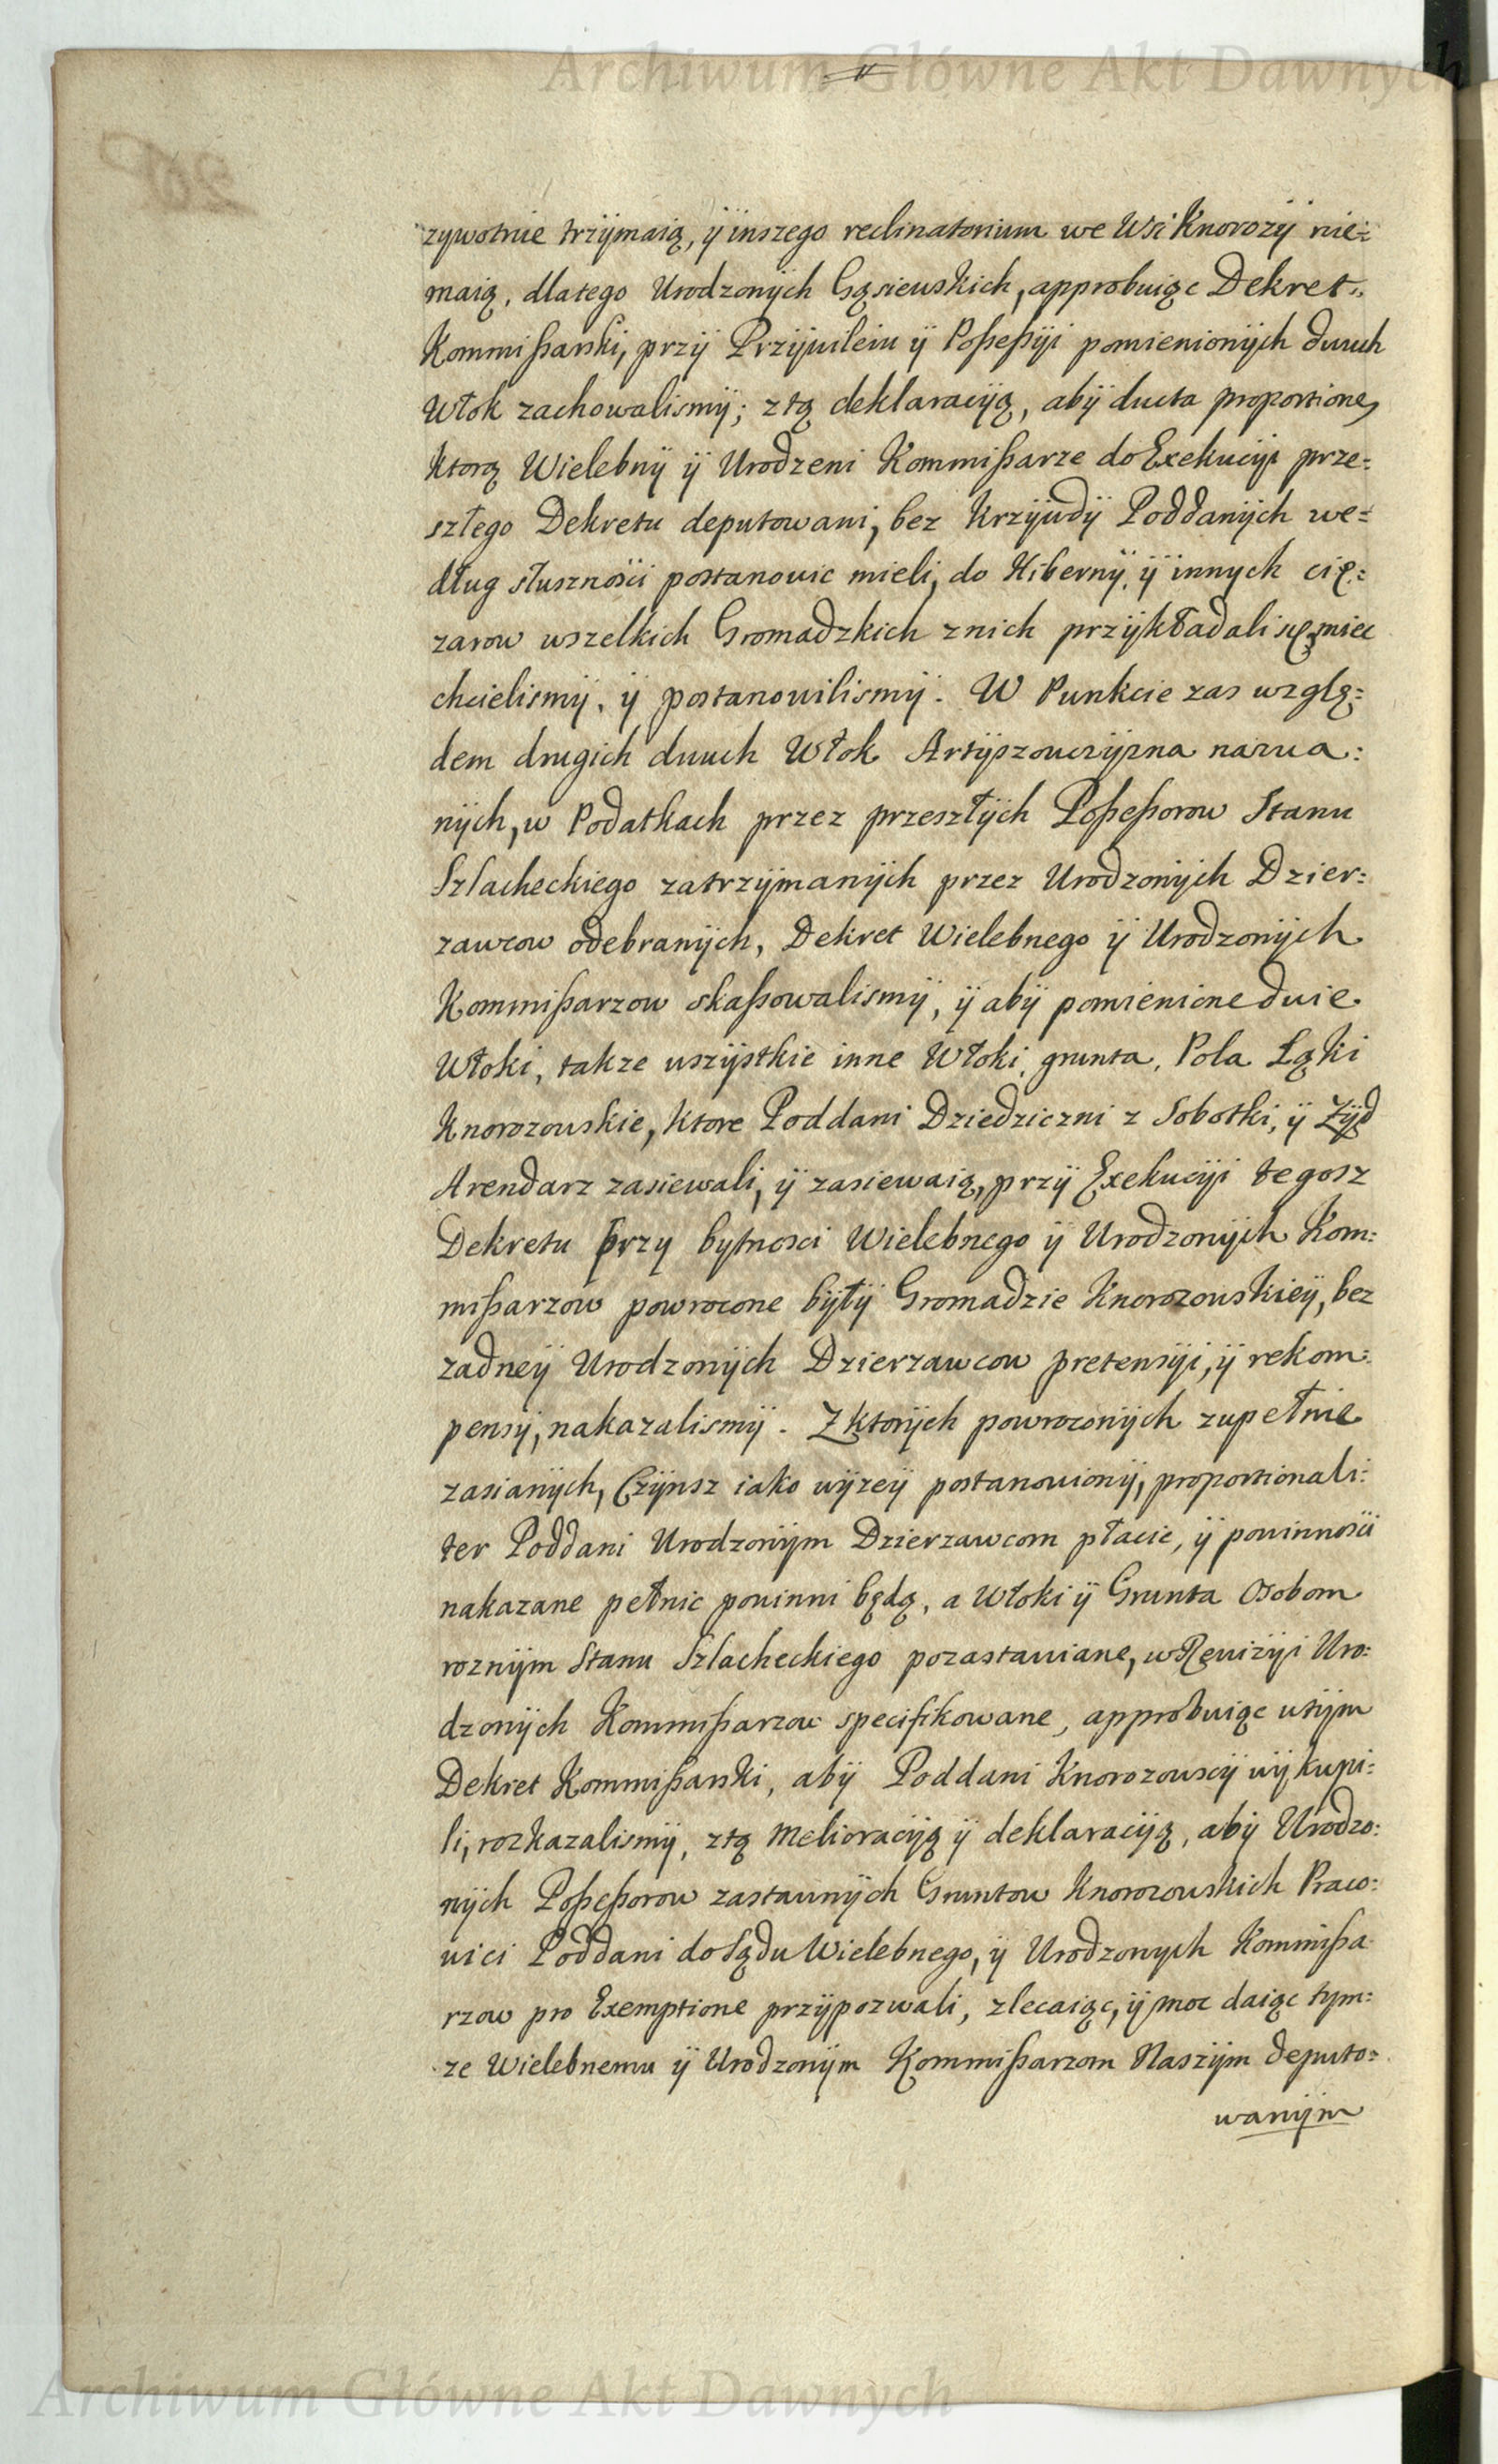 Archiwum Główne Akt Dawnych
zywotnie trzÿmaią, ÿ inszego reclinatorium we Wsi Knorozÿ nie=
maią, dlatego Urodzonÿch Gąsieuskich, approbuiąc Dekret
Kommißarski, przÿ Przÿuileiu ÿ Poßeßÿi pomienionÿch duuch
Włok zachowalismÿ; z tą deklaracÿą, abÿ ducta proportione,
ktorą Wielebnÿ ÿ Urodzeni Kommißarze do Exekucÿi prze=
szłego Dekretu deputowani, bez Krzÿwdÿ Poddanÿch we=
dług słusznosci postanouic mieli, do Hibernÿ, ÿ innych cię=
zarow wszelkich Gromadzkich z nich przÿkładali się, miec
chcielismÿ, ÿ postanouilismÿ. W Punkcie zas wzglę=
dem drugich duuch Włok Artÿszouczÿzna nazua=
nÿch, w Podatkach przez przeszłÿch Poßeßorow Stanu
Szlacheckiego zatrzÿmanÿch przez Urodzonÿch Dzier=
zawcow odebranÿch, Dekret Wielebnego ÿ Urodzonÿch
Kommißarzow skaßowalismÿ, ÿ abÿ pomienione duie
Włoki, takze uszÿstkie inne Włoki, grunta, Pola Łąki
Knorozouskie, ktore Poddani Dziedziczni z Sobotki, ÿ Zÿd
Arendarz zasiewali, ÿ zasiewaią, przÿ Exekucÿi tegosz
Dekretu przy bytnosci Wielebnego ÿ Urodzonÿch Kom=
mißarzow powrocone bÿłÿ Gromadzie Knorozouskieÿ, bez
zadneÿ Urodzonÿch Dzierzawcow pretensÿi, ÿ rekom=
pensÿ, nakazalismÿ. Z ktorÿch powroconÿch zupełnie
zasianÿch, Czÿnsz iako wÿzeÿ postanouionÿ, proportionali=
ter Poddani Urodzonÿm Dzierzawcom płacic, ÿ pouinnosci
nakazane pełnic pouinni będą, a Włoki ÿ Grunta Osobom
roznÿm Stanu Szlacheckiego pozastauiane, w Reuizÿi Uro=
dzonÿch Kommißarzow specifikowane, approbuiąc utÿm
Dekret Kommißarski, abÿ Poddani Knorozouscÿ uÿkupi=
li, rozkazalismÿ, z tą melioracÿą ÿ deklaracÿą, abÿ Urodzo=
nÿch Poßeßorow zastaunÿch Gruntow Knorozouskich Praco=
uici Poddani do Sądu Wielebnego, ÿ Urodzonych Kommißa
rzow pro Exemptione przÿpozwali, zlecaiąc, ÿ moc daiąc tym=
ze Wielebnemu ÿ Urodzonÿm Kommißarzom Naszÿm deputo=
wanÿm
Archiwum Główne Akt Dawnych